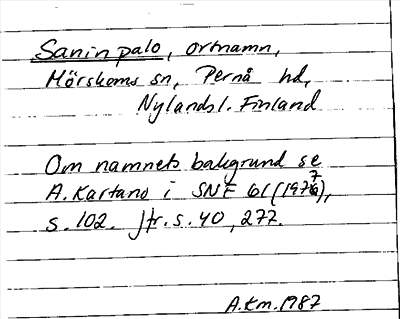 Saninpalo, ortnamn,
Mörskoms sn, Pernå hd,
Nylandsl. Finland
Om namnets bakgrund se
A. Kartano i SNF 61 (1977),
s. 102. Jfr. s. 40, 277.
A.Km. 1987